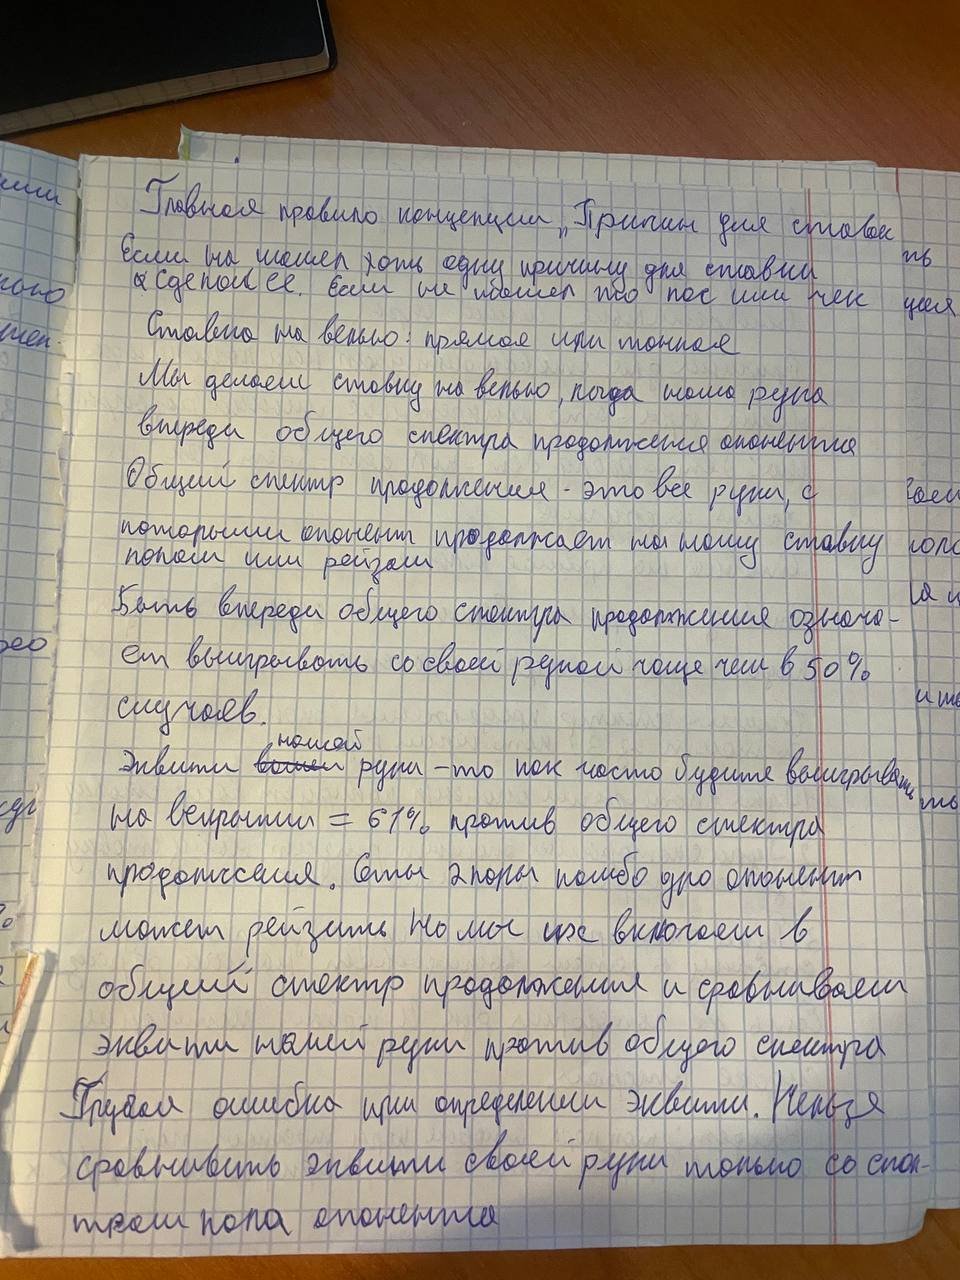 Главная правило концепции „Причин для ставок
Если нашел хоть одну причину для ставки
сделай ее. Если не нашел то пас или чек
Ставка на велью: прямая или тонкая
Мы делаем ставку на велью, когда наша рука
впереди общего спектра продолжения опонента
Общий спектр продолжения - это все руки, с
которыми опонент продолжает на нашу ставку
колом или рейзом
Быть впереди общего спектра продолжения означа-
ет выигрывать со своей рукой чаще чем в 50%
случаев.
нашей
Эквити руки - то как часто будите выигрывать
на вскрытии = 61% против общего спектра
продолжения. Сеты 2 пары комбо дро опонент
может рейзить но мы их включаем в
общий спектр продолжения и сравниваем
эквити нашей руки против общего спектра
Грубая ошибка при определении эквити. Нельзя
сравнивать эквити своей руки только со спек-
тром кола опонента